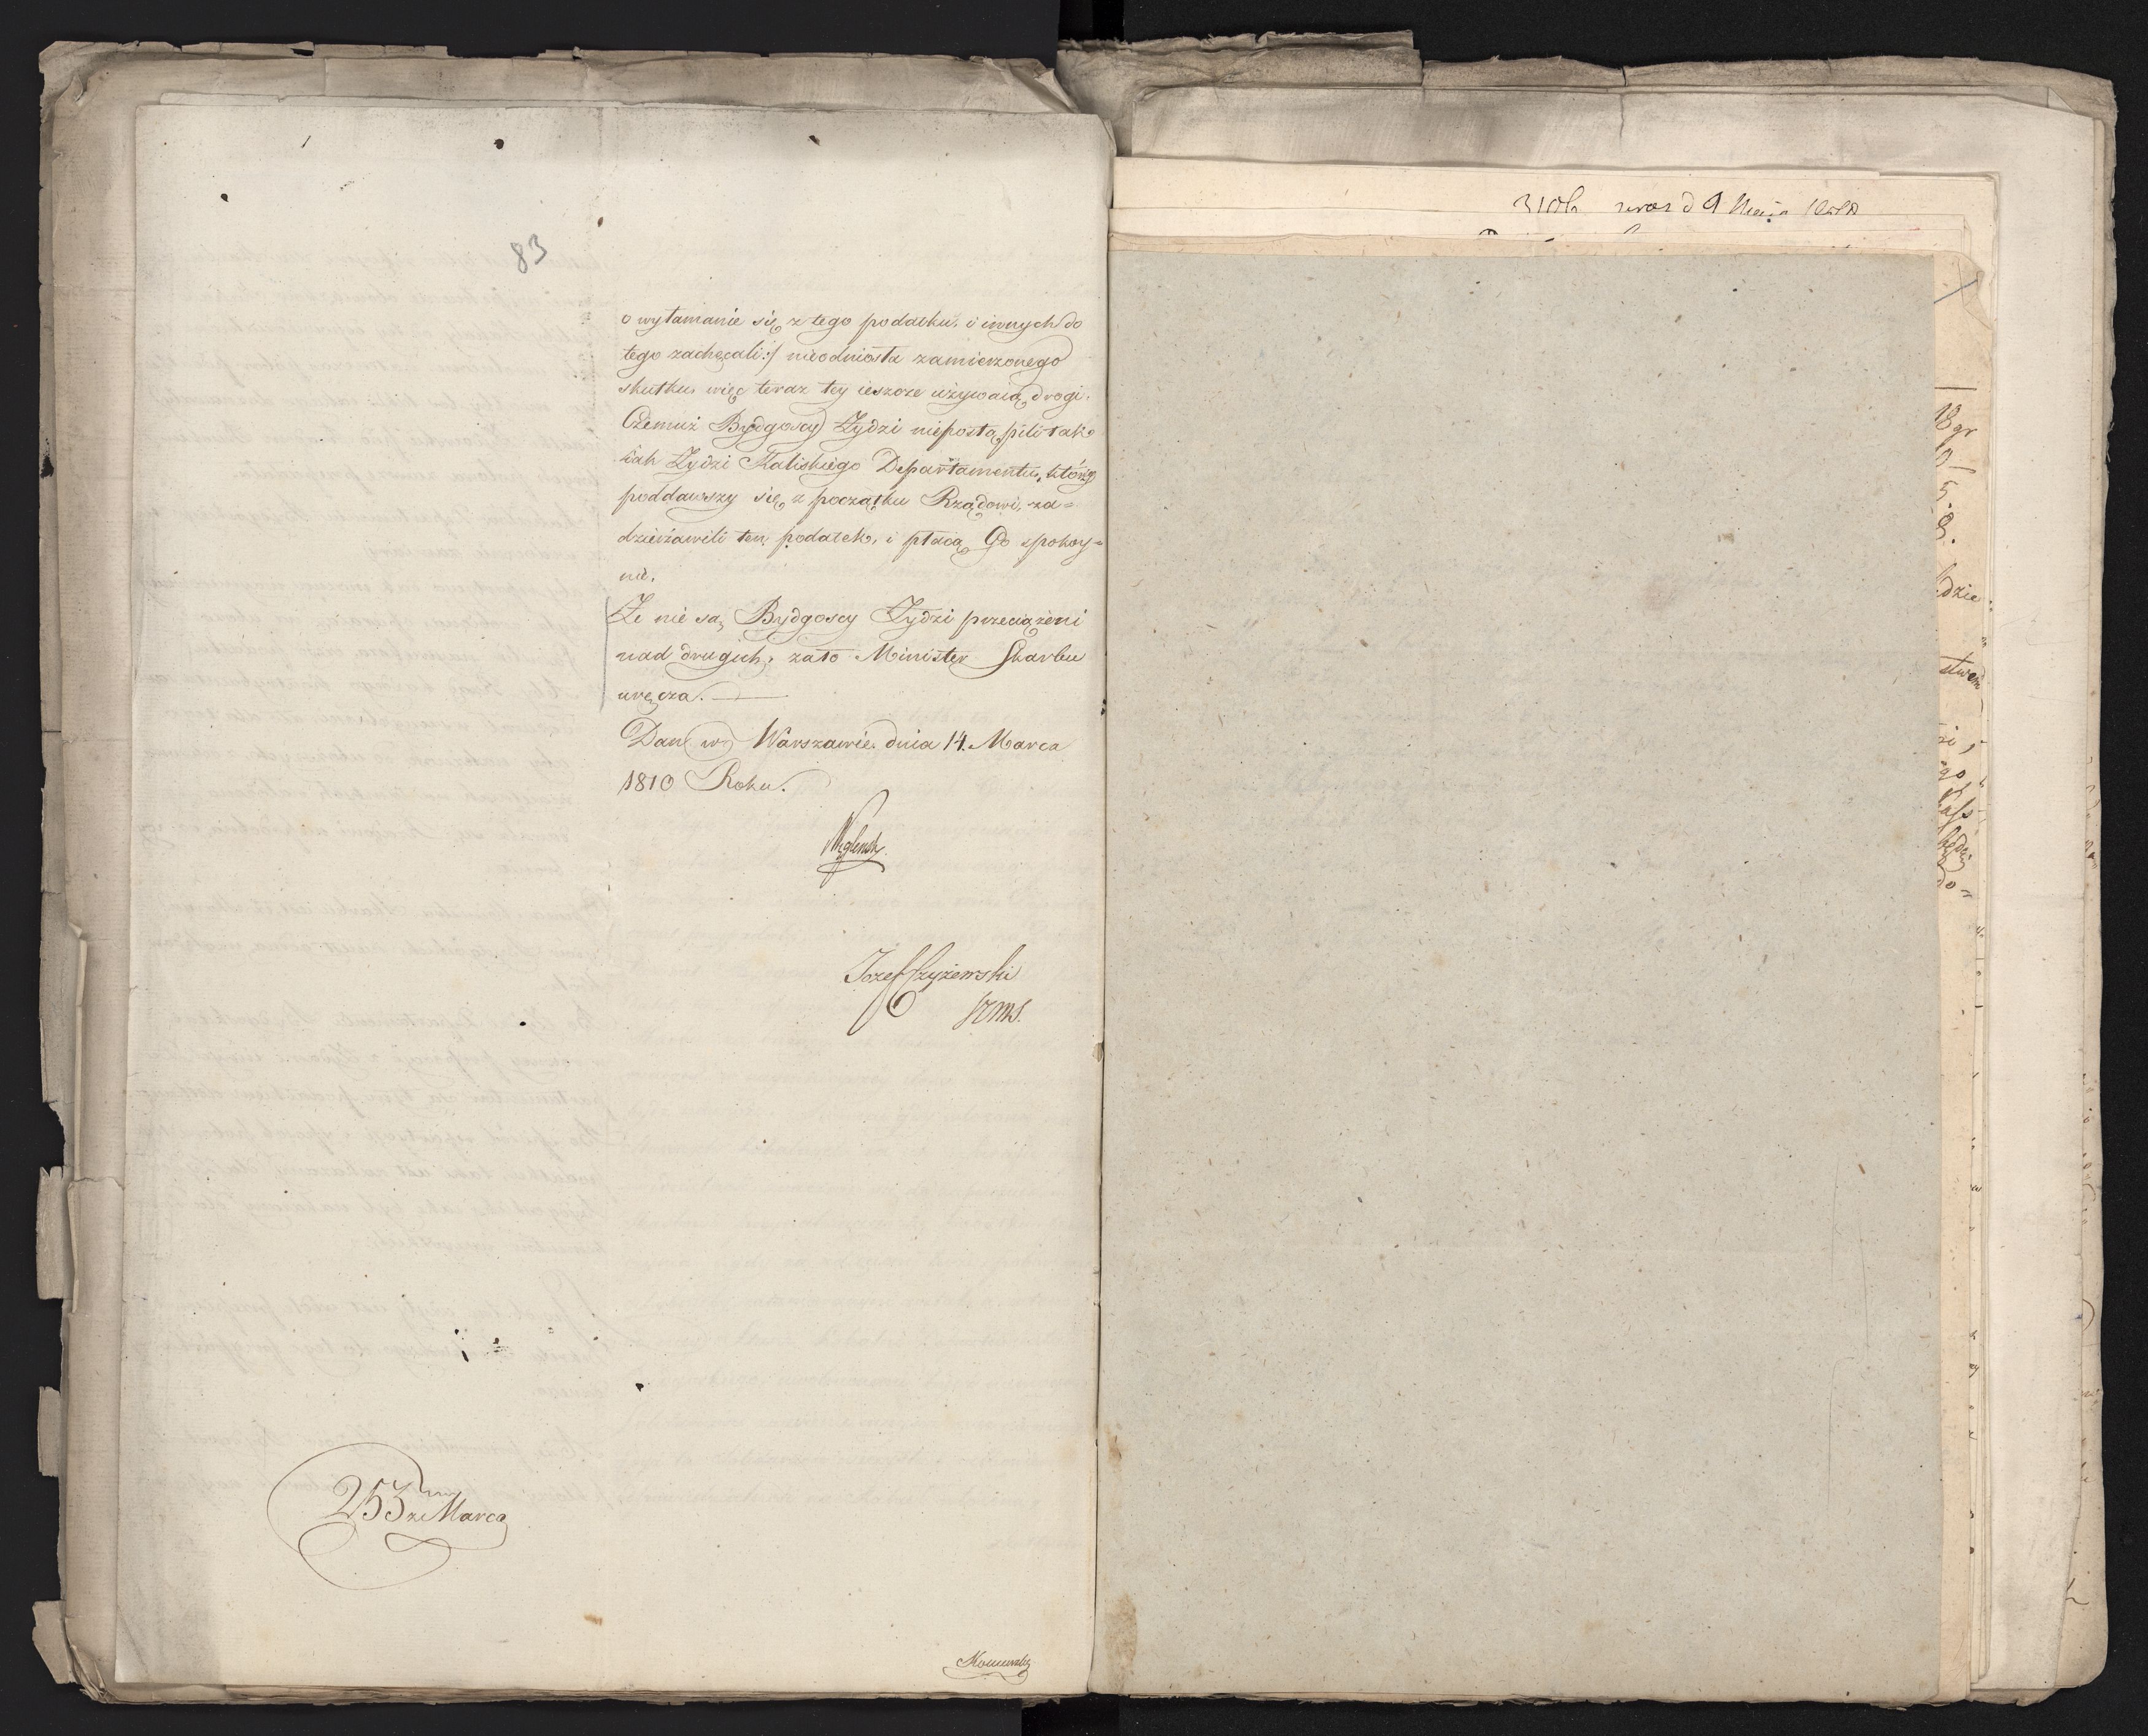 83
o wyłamanie się z tego podatku, i innych do
tego zachęcali:/ nieodniosła zamierzonego
skutku, więc teraz tey ieszcze używaią drogi.
Czemuż Bydgoscy Żydzi niepostąpili tak
iak Żydzi Kaliskiego Departamentu, którzy
poddawszy się z początku Rządowi, za=
dzierżawili ten podatek, i płacą Go spokoy=
nie.
Że nie są Bydgoscy Żydzi przeciążeni
nad drugich, zato Minister Skarbu
uręcza.
Dan w Warszawie dnia 14. Marca
1810 Roku.
Węglensk
Jozef Czyżewski
253 ze Marca
9 Maja
18 gr
5.
8.
dzie
stwem
go
do=